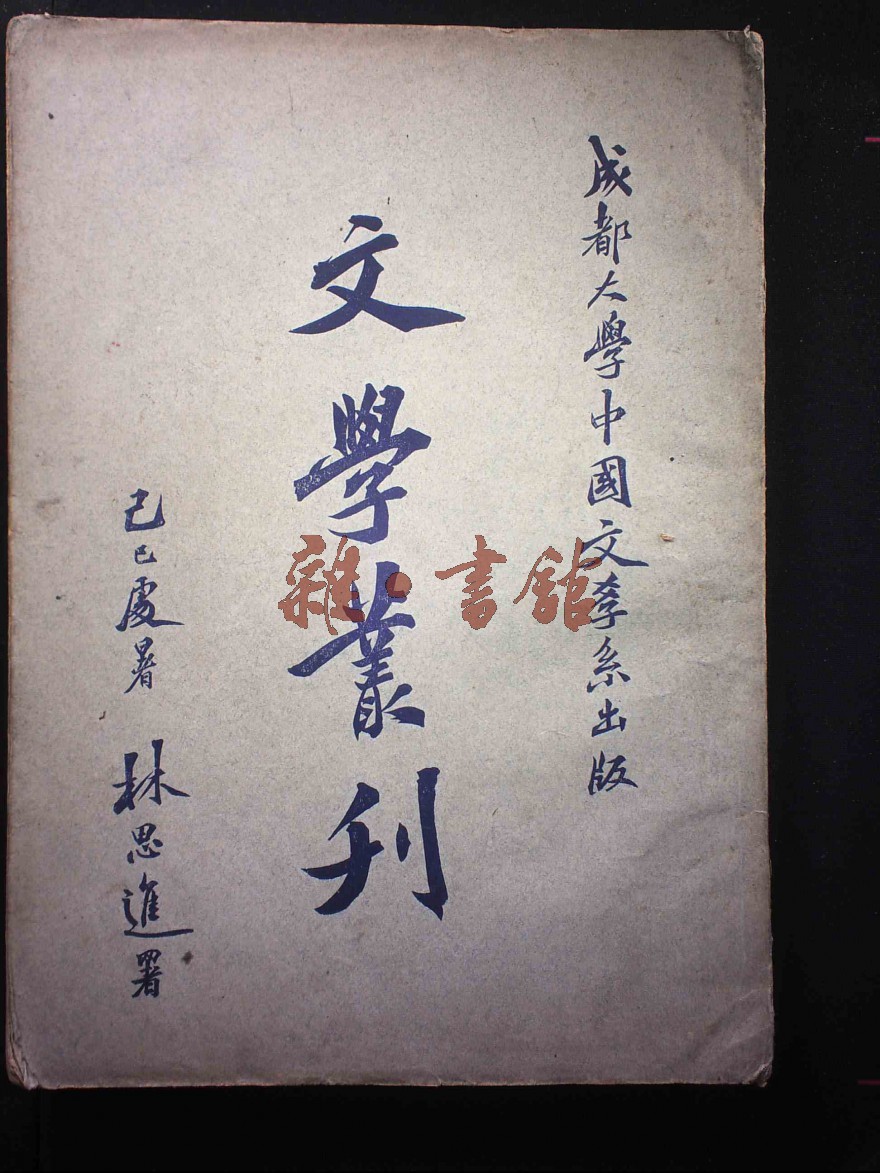 成都大學中國文學系出版
文學叢刊
己巳處暑 林思進署
雜·書館